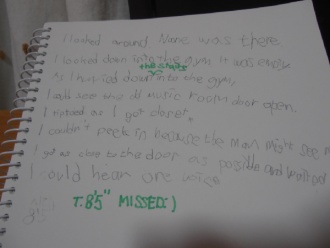 I looked around. None was there
I looked down into the gym. It was empty
the stairs
As I hurried down into the gym,
I could see the music room door open.
I tiptoed as I got closer.
I couldn't peek in because the man might see me
I got as close to the door as possible and
I could hear one voice
T. 8'5" MISSED:)
8'5"